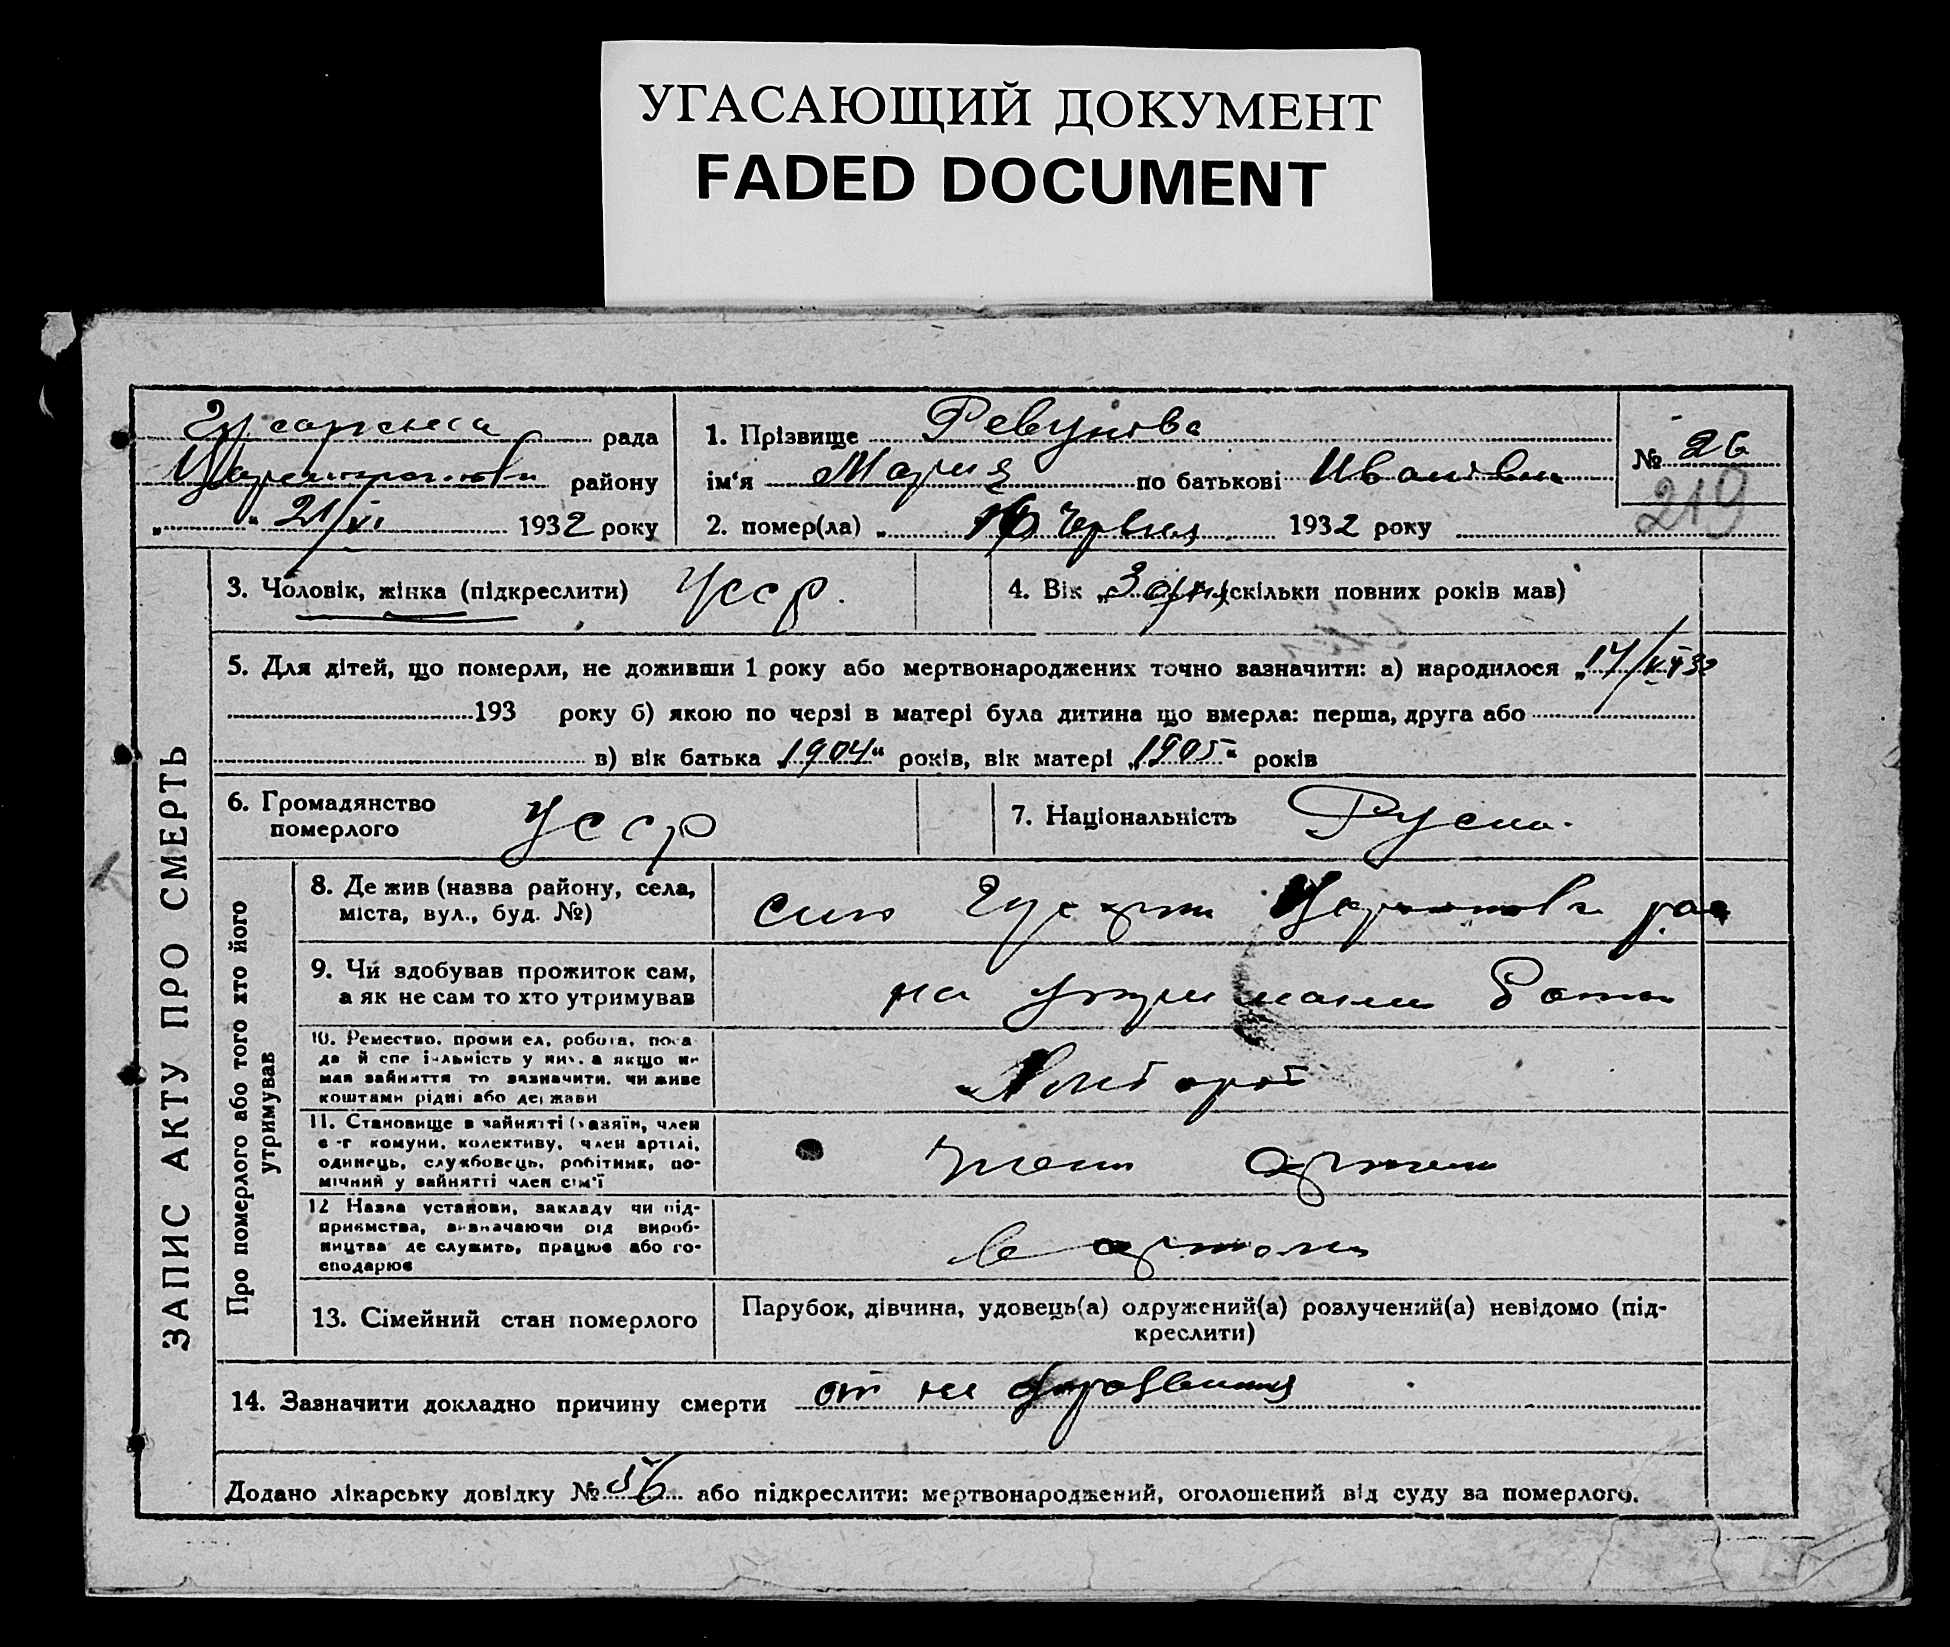 УГАСАЮЩИЙ ДОКУМЕНТ
FADED DOCUMENT
рада
району
21/VI 1932 року
1. Прізвище Ревунова
ім'я Мария по батькові Ивановна
2. помер(ла) „ 16 Червня 1932 року
№ 26
219
ЗАПИС АКТУ ПРО СМЕРТЬ
3. Чоловік, жінка (підкреслити) УССР.
4. Вік „ 3 дня (скільки повних років мав)
5. Для дітей, що померли, не доживши 1 року або мертвонароджених точно зазначити: а) народилося „
193 року б) якою по черзі в матері була дитина що вмерла: перша, друга або
в) вік батька „1904“ років, вік матері „1905“ років
6. Громадянство
померлого
УССР
7. Національність
Про померлого або того хто його
утримував
8. Де жив (назва району, села,
міста, вул., буд. №)
9. Чи здобував прожиток сам,
а як не сам то хто утримував
на
10. Ремество, проми ел, робота, поса
да й спе іяльність у них, а якщо не
мав зайняття то зазначити, чи живе
коштами рідні або держави
11. Становище в зайнятті (хазяїн, член
с-г комуни, колективу, член артілі,
одинець, службовець, робітник, по-
мічний у зайнятті член сім'ї
член артели
12 Назва установи, закладу чи під-
приємства, визначаючи рід вироб-
ництва де служить, працює або го-
сподарює
в артели
13. Сімейний стан померлого
Парубок, дівчина, удовець(а) одружений(а) розлучений(а) невідомо (під-
креслити)
14. Зазначити докладно причину смерти от не
Додано лікарську довідку № 56 або підкреслити: мертвонароджений, оголошений від суду за померлого.